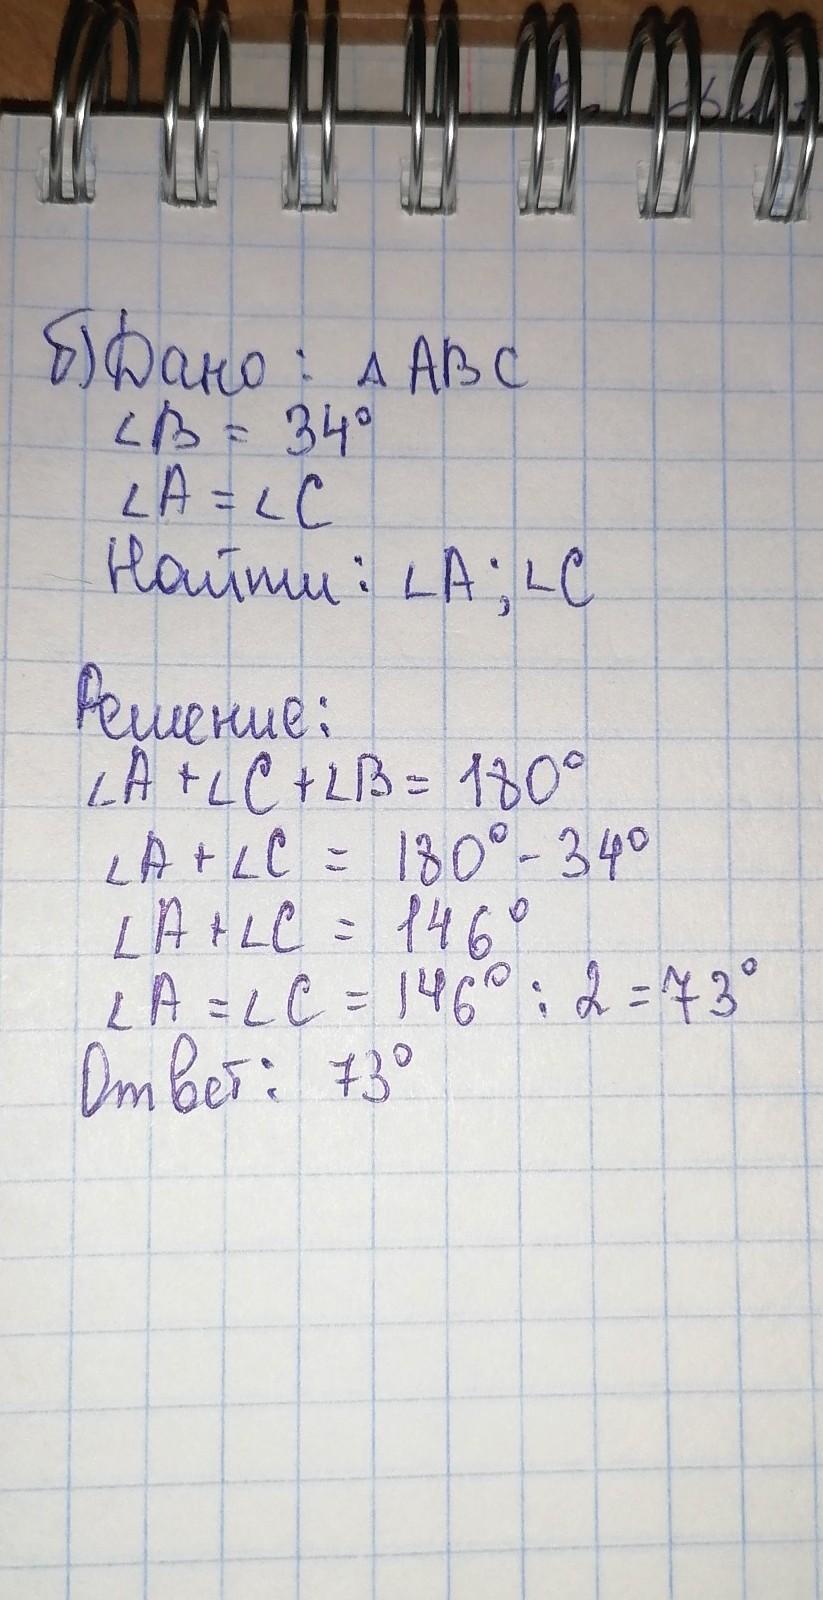 б) Дано: △ ABC
∠B = 34°
∠A = ∠C
Найти: ∠A; ∠C
Решение:
∠A + ∠C + ∠B = 180°
∠A + ∠C = 180° - 34°
∠A + ∠C = 146°
∠A = ∠C = 146° : 2 = 73°
Ответ: 73°